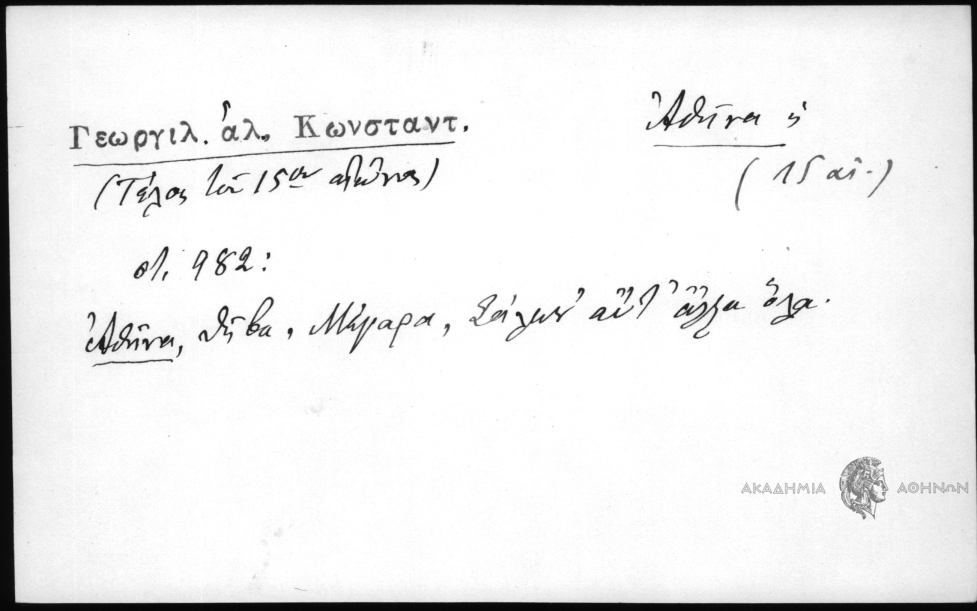 Γεωργιλ. ἁλ. Κωνσταντ.
Ἀθῆνα ἡ
(Τέλος τοῦ 15ου αἰῶνος)
(15 αἰ.)
στ. 982:
Ἀθῆνα, Θῆβα, Μέγαρα, ἄλλα ὅλα.
ΑΚΑΔΗΜΙΑ ΑΘΗΝΩΝ